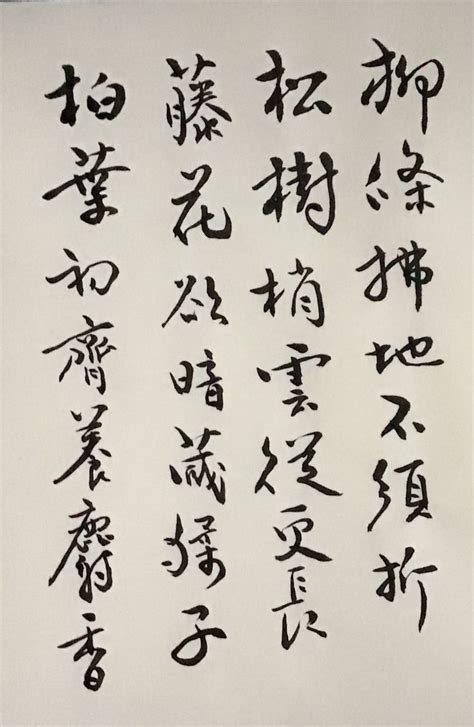 柳條拂地不須折
松樹梢雲從更長
藤花欲暗藏猱子
柏葉初齊養麝香